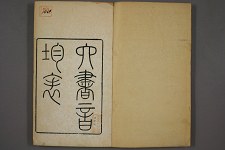 六書音
均表